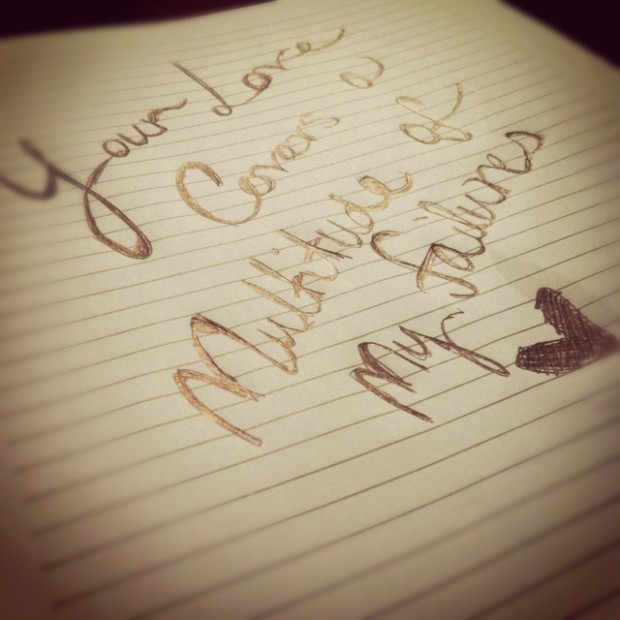 Your Love
Covers a
Multitude of
My Failures